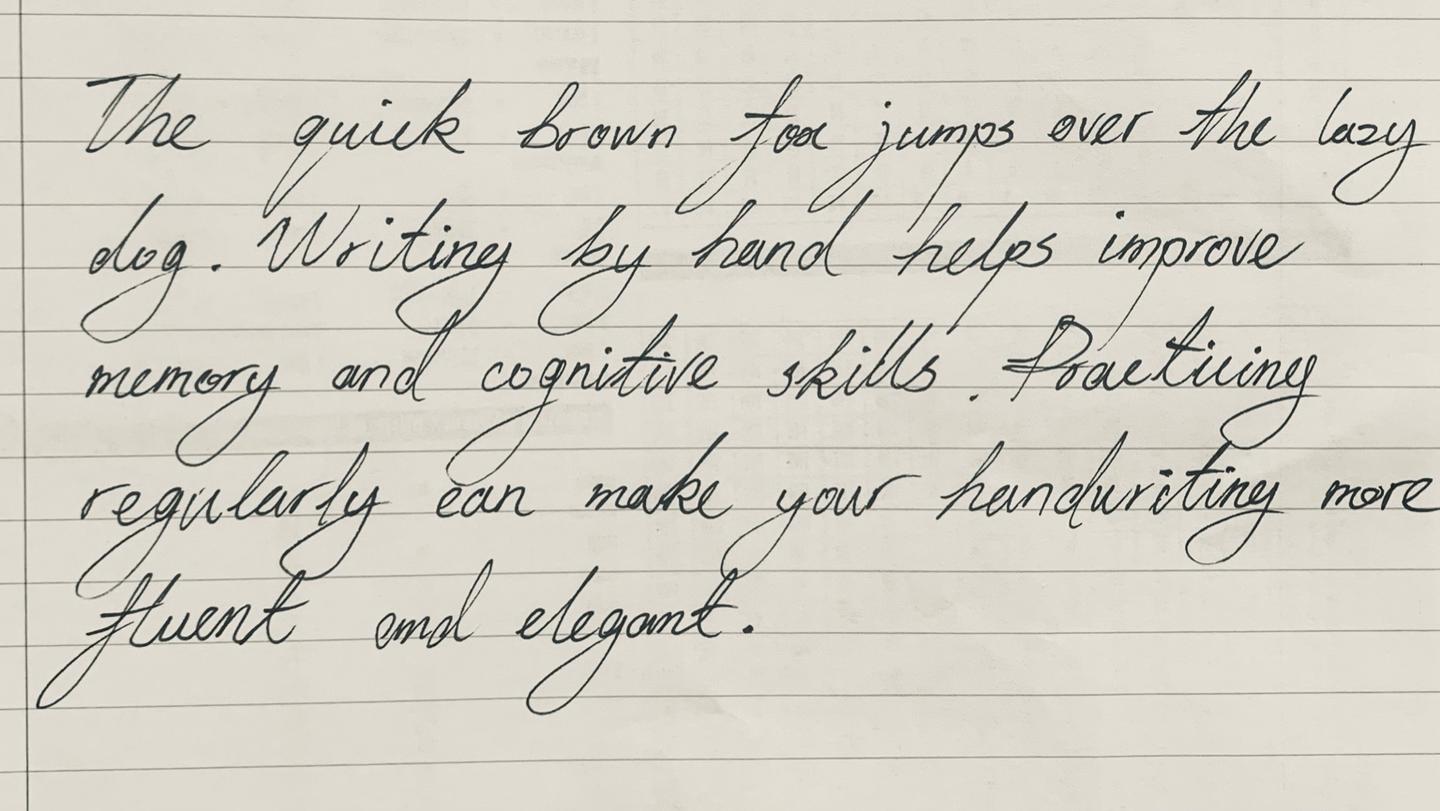 The quick brown fox jumps over the lazy
dog. Writing by hand helps improve
memory and cognitive skills. Practicing
regularly can make your handwriting more
fluent and elegant.